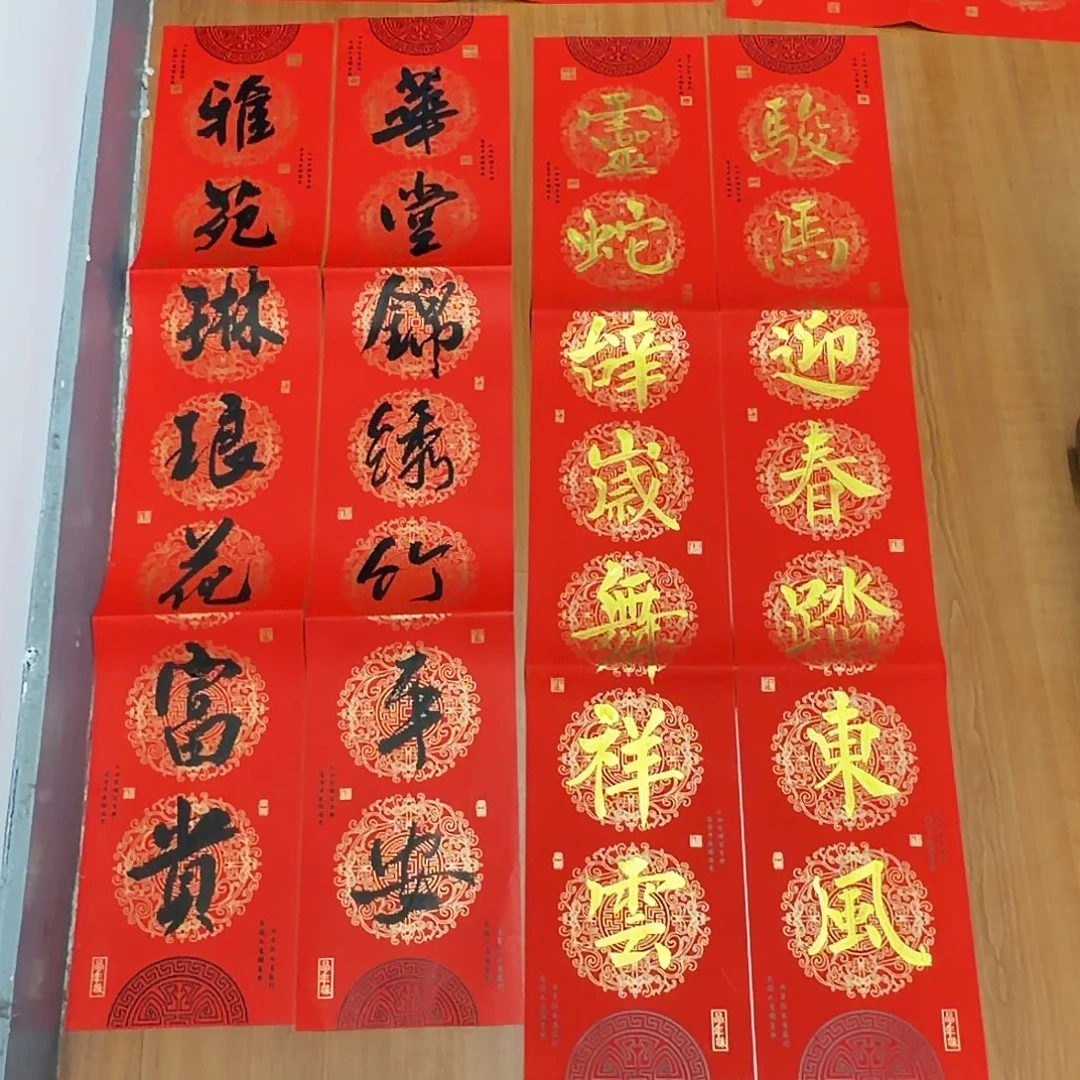 駿馬迎春踏東風
靈蛇辞歲舞祥雲
華堂錦绣竹平安
雅苑琳琅花富貴